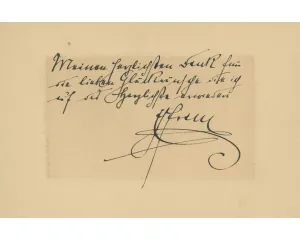 Meinen herzlichsten Dank für
die lieben Glückwünsche die ich
auf das Herzlichste erwidere